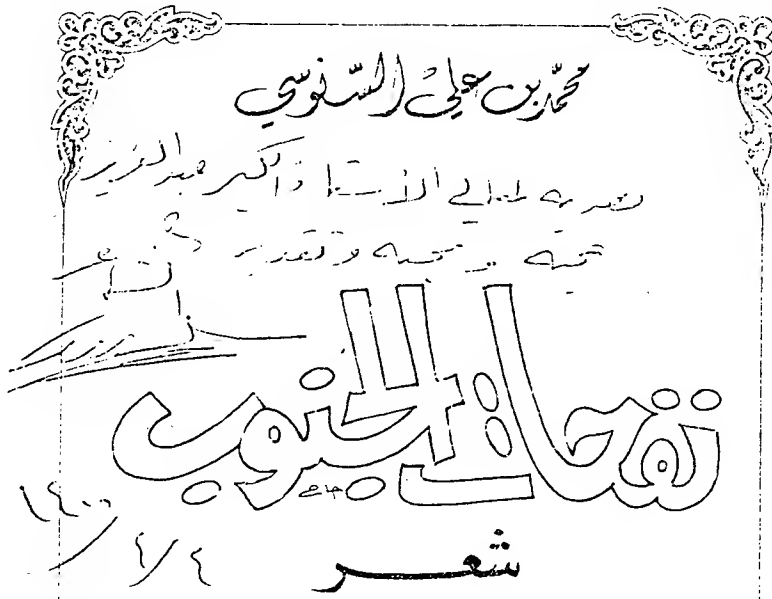 محمد بن علي السنوسي
لمعالي الأستاذ الكبير عبد العزيز
تحية ومحبة وتقدير
نفحات الجنوب
١٤٠٠/٤/٤
شعر